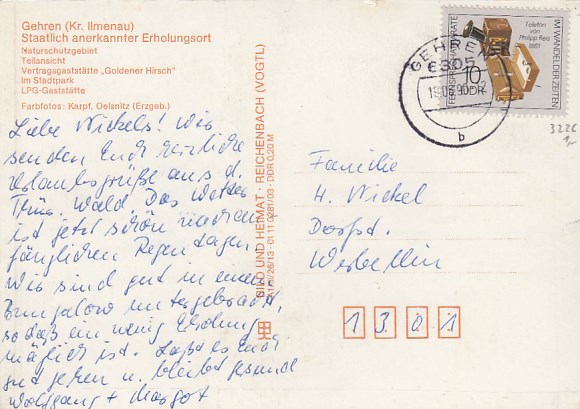 Gehren (Kr. Ilmenau)
Staatlich anerkannter Erholungsort
Naturschutzgebiet
Teilansicht
Vertragsgaststätte „Goldener Hirsch"
im Stadtpark
LPG-Gaststätte
Farbfotos: Karpf, Oelsnitz (Erzgeb.)
Liebe Nickels! Wir
senden Euch herzliche
Urlaubsgrüße aus d.
Thür. Wald. Das Wetter
ist jetzt schön nach an
fänglichen Regentagen.
Wir sind gut in einem
Bungalow untergebracht,
so daß ein wenig Erholung
möglich ist. Laßt es Euch
gut gehen u. bleibt gesund
Wolfgang + Margot
BILD UND HEIMAT · REICHENBACH (VOGTL)
01 11 0281/03 · DDR 0,20 M
GEHREN
6305
DDR
b
FERNSPRECHAPPARATE
IM WANDEL DER ZEITEN
Telefon
von
Philipp Reis
1861
10
DDR
3226
Familie
H. Nickel
Dorfst.
Werbellin
1 3 0 1